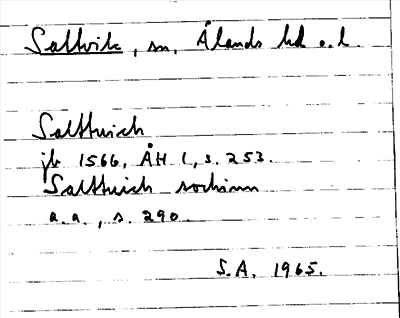 Saltvik, sn, Ålands hd o. l.
Salttuich
jb 1566, ÅH 1, s. 253.
Salttuich sochnn
a.a., s. 290
S.A. 1965.